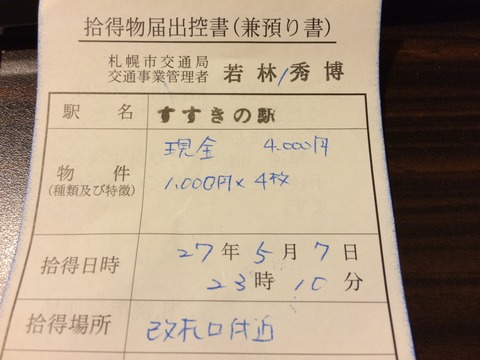 拾得物届出控書(兼預り書)
札幌市交通局
交通事業管理者 若林秀博
駅名 すすきの駅
物件 現金 4.000円
(種類及び特徴) 1.000円×4枚
拾得日時 27年5月7日
23時10分
拾得場所 改札口付近